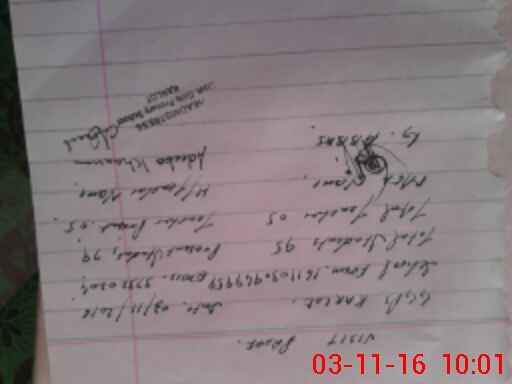 VISIT PROOF.
GGPS KARLOT. Date. 03/11/2016
School Form. EMIS.
Total Students 95 Present Students, 79
Total Teacher 05 Teacher Present. 05
MEA Name. H/Teacher Name.
ABBAS. Adeeba Khanum
HEADMISTRESS
Govt. Girls Primary School
KARLOT
03-11-16 10:01